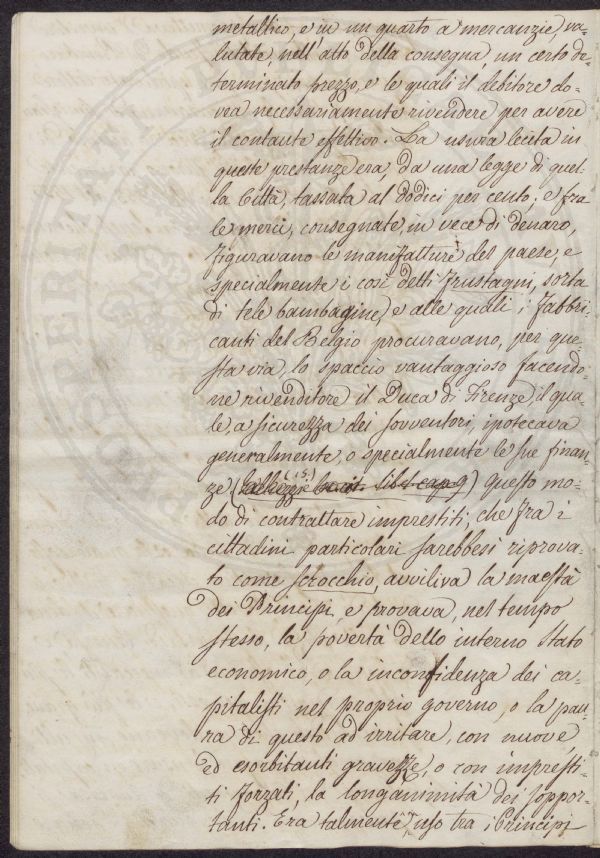 metallico, e in un quarto a mercanzie, va-
lutate, nell'atto della consegna, un certo de-
terminato prezzo, e le quali il debitore do-
vea necessariamente rivendere per avere
il contante effettivo. La usura lecita in
queste prestanze era, da una legge di quel-
la Città, tassata al dodici per cento; e fra
le merci, consegnate, in vece di denaro,
figuravano le manifatture del paese, e
specialmente i così detti frustagni, sorta
di tele bambagine, e alle quali i fabbri-
canti del Belgio procuravano, per que-
sta via, lo spaccio vantaggioso facendo-
ne rivenditore il Duca di Firenze il qua-
le, a sicurezza dei sovventori, ipotecava
generalmente, o specialmente le sue finan-
ze (15) Questo mo-
do di contrattare imprestiti, che fra i
cittadini particolari sarebbesi riprova-
to come scrocchio, avviliva la maestà
dei Principi, e provava, nel tempo
stesso, la povertà dello interno stato
economico, o la inconfidenza dei ca-
pitalisti nel proprio governo, o la pau-
ra di questo ad irritare, con nuove,
ed esorbitanti gravezze, o con impresti-
ti forzati, la longanimità dei soppor-
tanti. Era talmente uso tra i Principi
PROSPERITATI